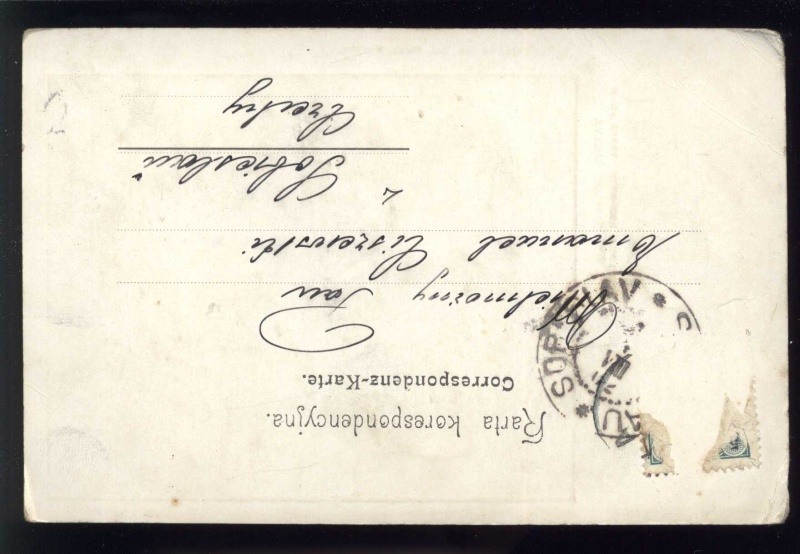 Karta korespondencyjna.
Correspondenz-Karte.
Wielmożny Pan
Emanuel Ciszewski
w Sobieslau
Czechy